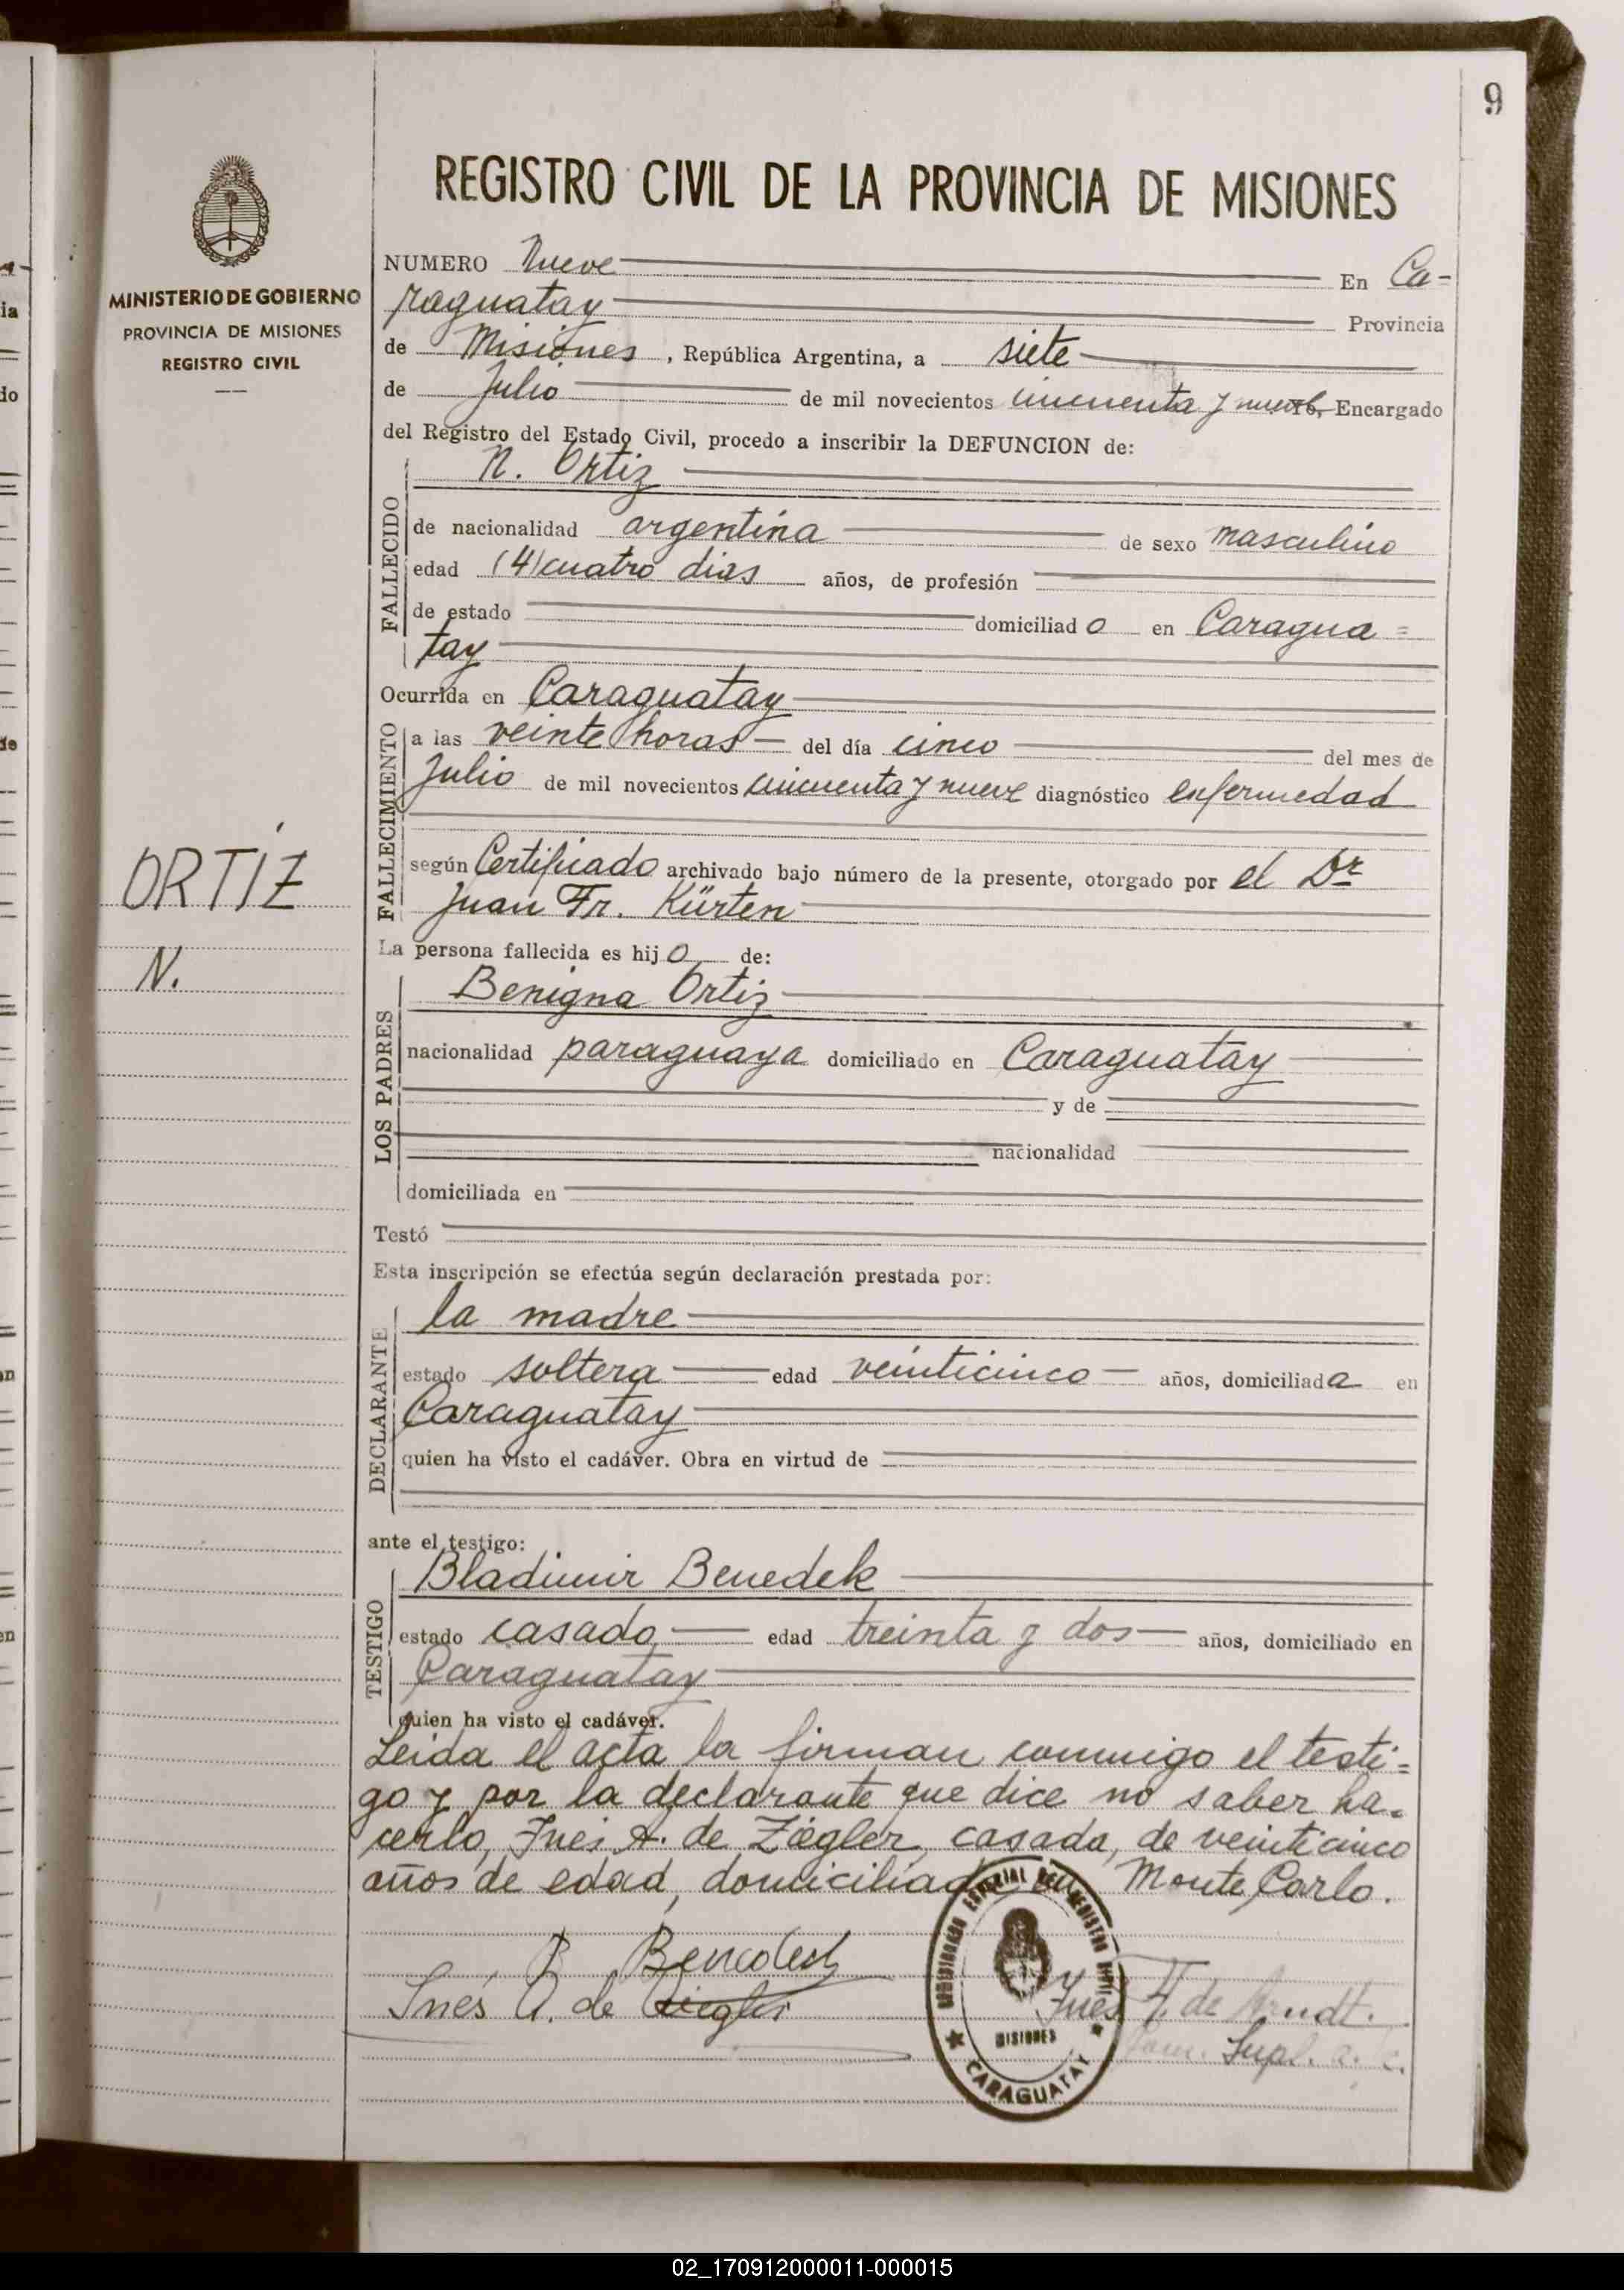 9
REGISTRO CIVIL DE LA PROVINCIA DE MISIONES
MINISTERIO DE GOBIERNO
PROVINCIA DE MISIONES
REGISTRO CIVIL
NUMERO Nueve En Ca-
raguatay Provincia
de Misiones, República Argentina, a siete
de Julio de mil novecientos cincuenta y nueve, Encargado
del Registro del Estado Civil, procedo a inscribir la DEFUNCION de:
N. Ortiz
FALLECIDO
de nacionalidad argentina de sexo masculino
edad (4) cuatro dias años, de profesión
de estado domiciliado en Caragua=
tay
Ocurrida en Caraguatay
FALLECIMIENTO
a las veinte horas del día cinco del mes de
Julio de mil novecientos cincuenta y nueve diagnóstico enfermedad
según Certificado archivado bajo número de la presente, otorgado por el Dr
Juan Fr. Kürten
ORTIZ
N.
La persona fallecida es hijo de:
LOS PADRES
Benigna Ortiz
nacionalidad paraguaya domiciliado en Caraguatay
y de
nacionalidad
domiciliada en
Testó
Esta inscripción se efectúa según declaración prestada por:
DECLARANTE
la madre
estado soltera edad veinticinco años, domiciliada en
Caraguatay
quien ha visto el cadáver. Obra en virtud de
ante el testigo:
TESTIGO
Bladimir Benedek
estado casado edad treinta y dos años, domiciliado en
Caraguatay
quien ha visto el cadáver.
Leida el acta la firman conmigo el testi=
go y por la declarante que dice no saber ha=
cerlo, Inés A. de Ziegler, casada, de veinticinco
años de edad, domiciliada en Monte Carlo.
B Benedek
Inés A. de Ziegler
Inés F. de Arndt.
Supl. a. c.
MISIONES
CARAGUATAY
02_170912000011-000015